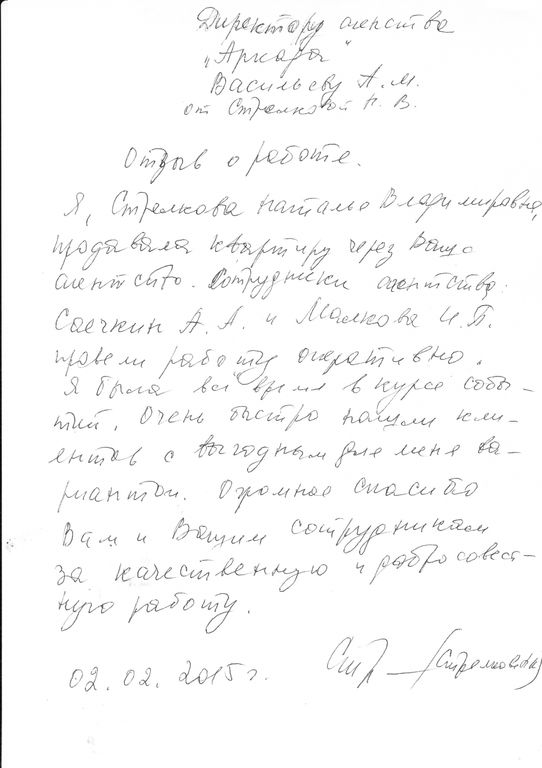 Директору агенства
„Аркада"
Васильеву А.М.
от Стрелковой Н.В.
Отзыв о работе.
Я, Стрелкова Наталья Владимировна,
продавала квартиру через Ваше
агентство. Сотрудники агентства:
Саечкин А.А. и Малкова И.П.
провели работу оперативно.
Я была всё время в курсе собы-
тий. Очень быстро нашли кли-
ентов с выгодным для меня ва-
риантом. Огромное спасибо
Вам и Вашим сотрудникам
за качественную и добросовест-
ную работу.
02.02.2015г. Стр (Стрелкова)